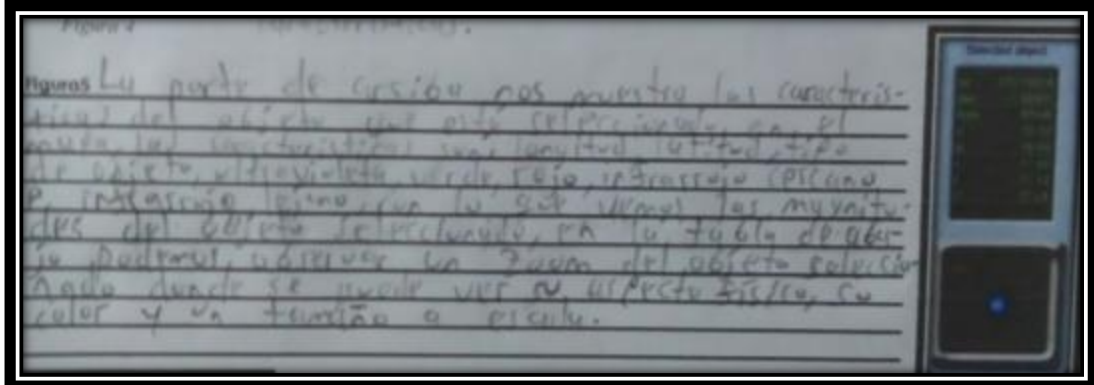 Figura 4
características.
Figura 5 La parte de arriba nos muestra las caracterís-
ticas del objeto que está seleccionado, en el
las características son, longitud latitud, tipo
de objeto, ultravioleta verde, rojo, infrarrojo cercano
e infrarrojo lejano, con lo que vemos las magnitu-
des del objeto seleccionado, en la tabla de aba-
jo podemos observar un zoom del objeto seleccio-
nado donde se puede ver su aspecto físico, su
color y un tamaño a escala.
Selected object